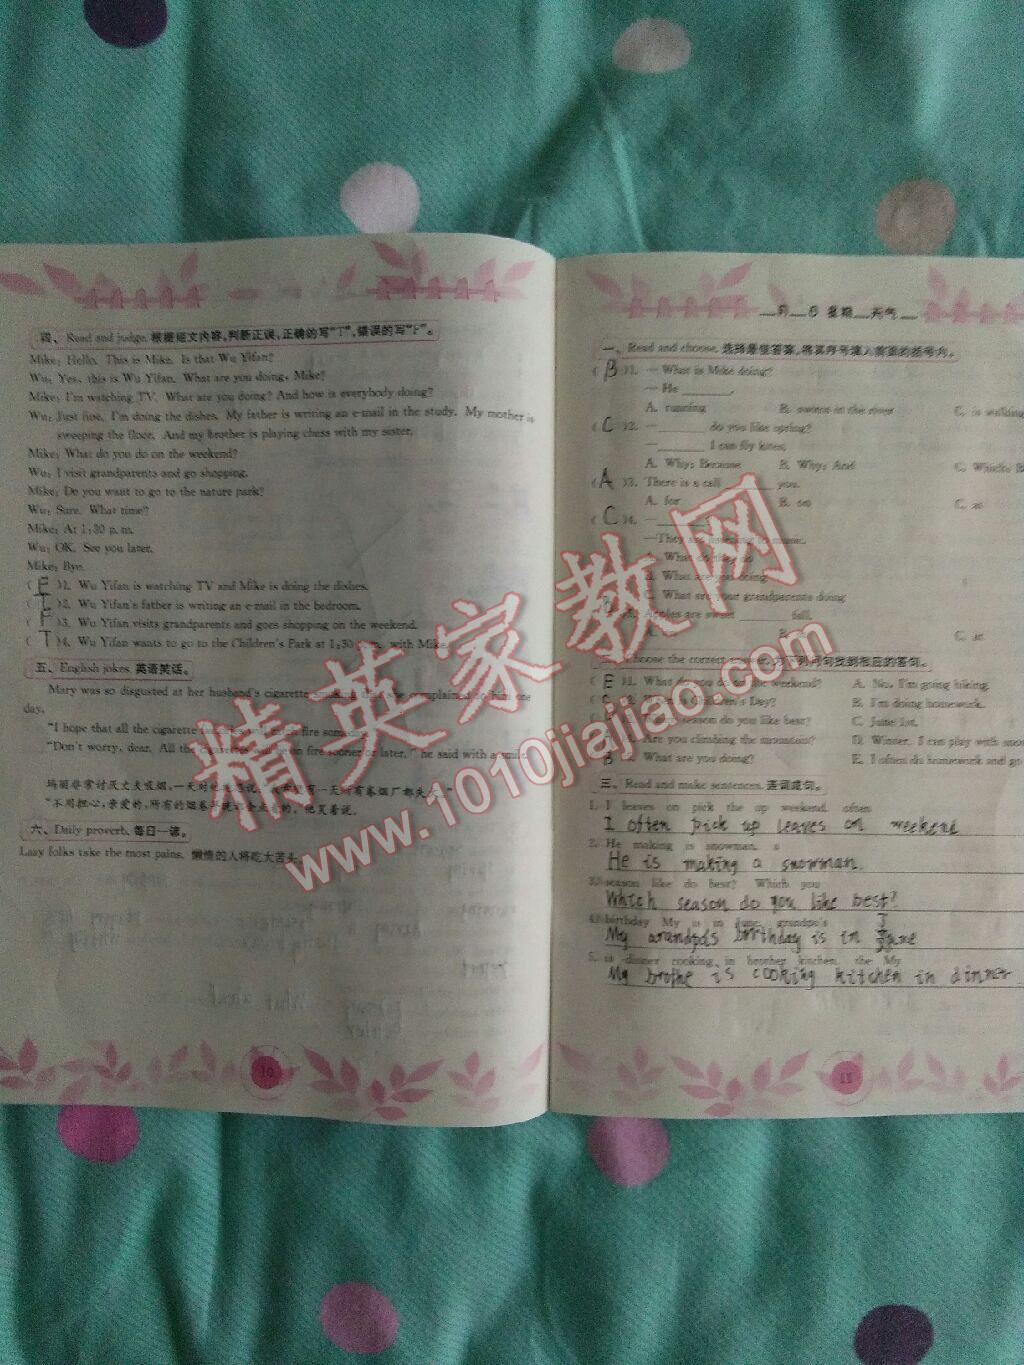 四、Read and judge. 根据短文内容,判断正误,正确的写"T",错误的写"F"。
Mike: Hello. This is Mike. Is that Wu Yifan?
Wu: Yes, this is Wu Yifan. What are you doing, Mike?
Mike: I'm watching TV. What are you doing? And how is everybody doing?
Wu: Just fine. I'm doing the dishes. My father is writing an e-mail in the study. My mother is
sweeping the floor. And my brother is playing chess with my sister.
Mike: What do you do on the weekend?
Wu: I visit grandparents and go shopping.
Mike: Do you want to go to the nature park?
Wu: Sure. What time?
Mike: At 1:30 p.m.
Wu: OK. See you later.
Mike: Bye.
( F )1. Wu Yifan is watching TV and Mike is doing the dishes.
( )2. Wu Yifan's father is writing an e-mail in the bedroom.
( F )3. Wu Yifan visits grandparents and goes shopping on the weekend.
( T )4. Wu Yifan wants to go to the Children's Park at 1:30 p.m. with Mike.
五、English jokes. 英语笑话。
Mary was so disgusted at her husband's cigarette smoking that she complained to him one
day.
"I hope that all the cigarette fire someday."
"Don't worry, dear. All the cigarettes will be on fire sooner or later," he said with a smile.
玛丽非常讨厌丈夫吸烟,一天对他抱怨说:有一天所有卷烟厂都失火。"
"不用担心,亲爱的,所有的烟卷早晚都会点着的。"他笑着说。
六、Daily proverb. 每日一谚。
Lazy folks take the most pains. 懒惰的人将吃大苦头。
10
月 日 星期 天气
一、Read and choose. 选择最佳答案,将其序号填入前面的括号内。
( B )1. — What is Mike doing?
— He ______.
A. running B. swims in the river C. is walking
( C )2. —______ do you like spring?
—______ I can fly kites.
A. Why; Because B. Why; And C. Which; B
( A )3. There is a call ______ you.
A. for B. on C. at
( C )4. —______
—They are listening to music.
A. What do they do
B. What are you doing
C. What are your grandparents doing
5. Apples are sweet ______ fall.
A. B. C. at
Choose the correct answer. 为下列问句找到相应的答句。
( E )1. What do you do on the weekend? A. No, I'm going hiking.
( C )2. When is Children's Day? B. I'm doing homework.
season do you like best? C. June 1st.
Are you climbing the mountain? D. Winter. I can play with snow
( B )5. What are you doing? E. I often do homework and go
三、Read and make sentences. 连词成句。
1. I leaves on pick the up weekend often
I often pick up leaves on weekend
2. He making is snowman a
He is making a snowman.
3. season like do best? Which you
Which season do you like best?
4. birthday My is in June grandpa's
My grandpds birthday is in June
5. is dinner cooking in brother kitchen the My
My brothe is cooking kitchen in dinner.
11
精英家教网
www.1010jiajiao.com